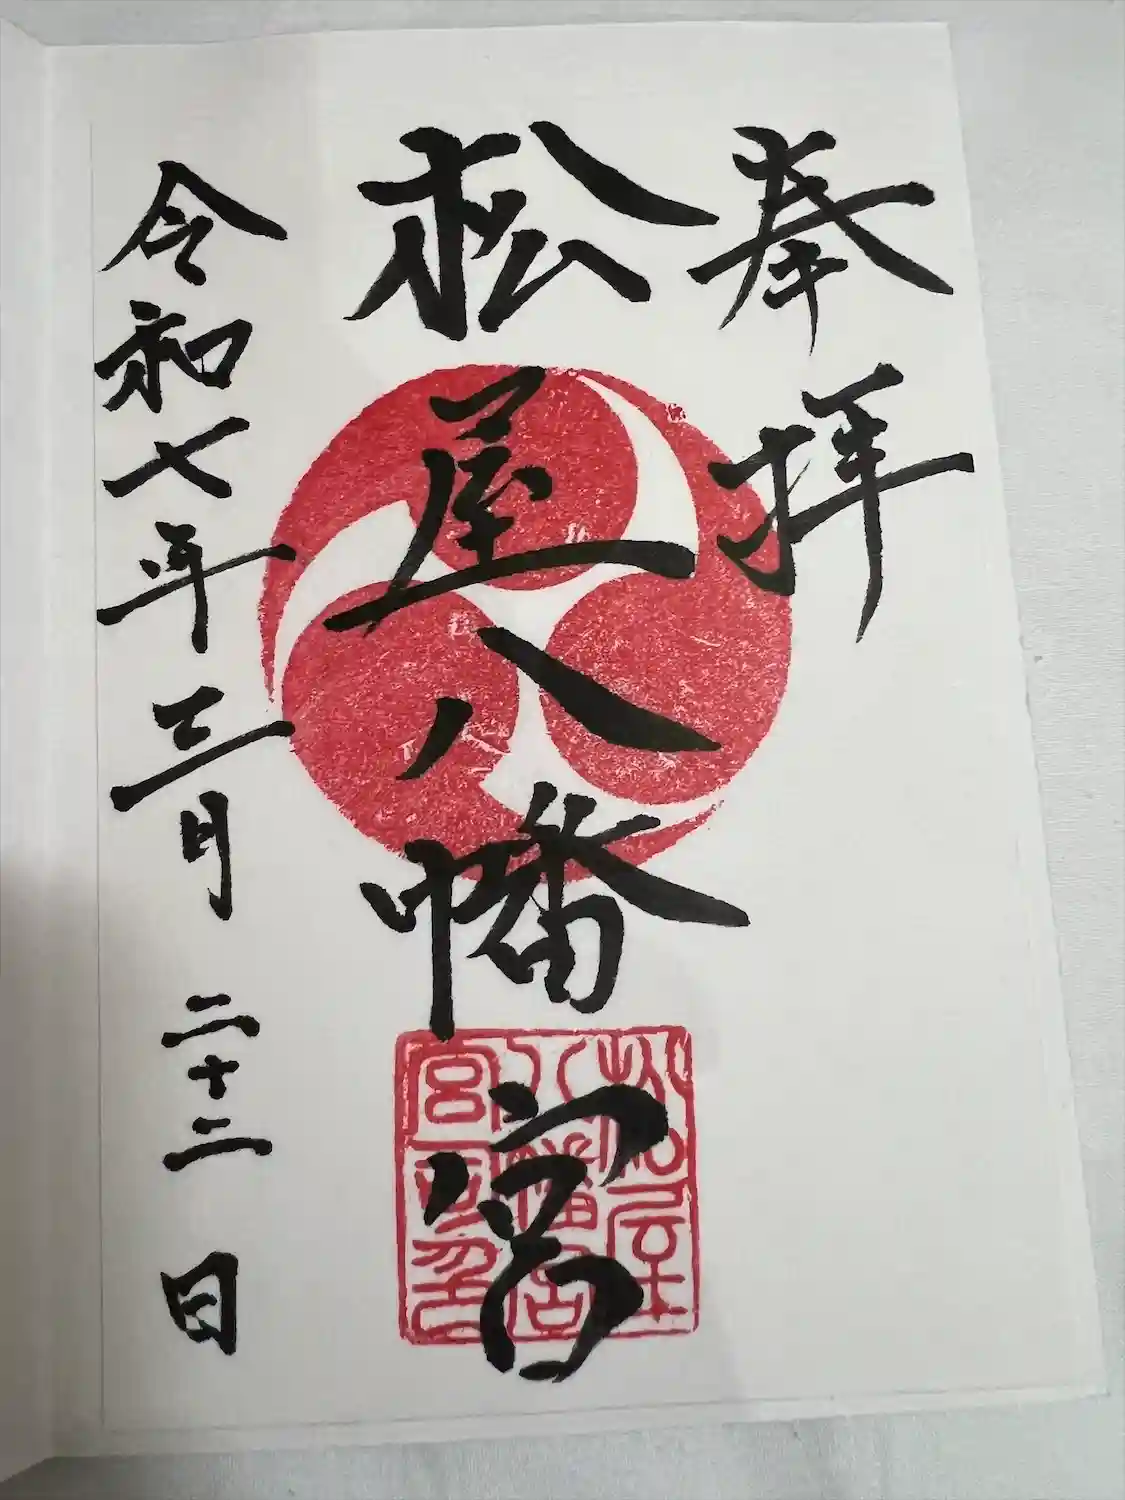 奉拝
松屋八幡宮
令和七年三月二十二日
松屋
八幡宮
宮司印